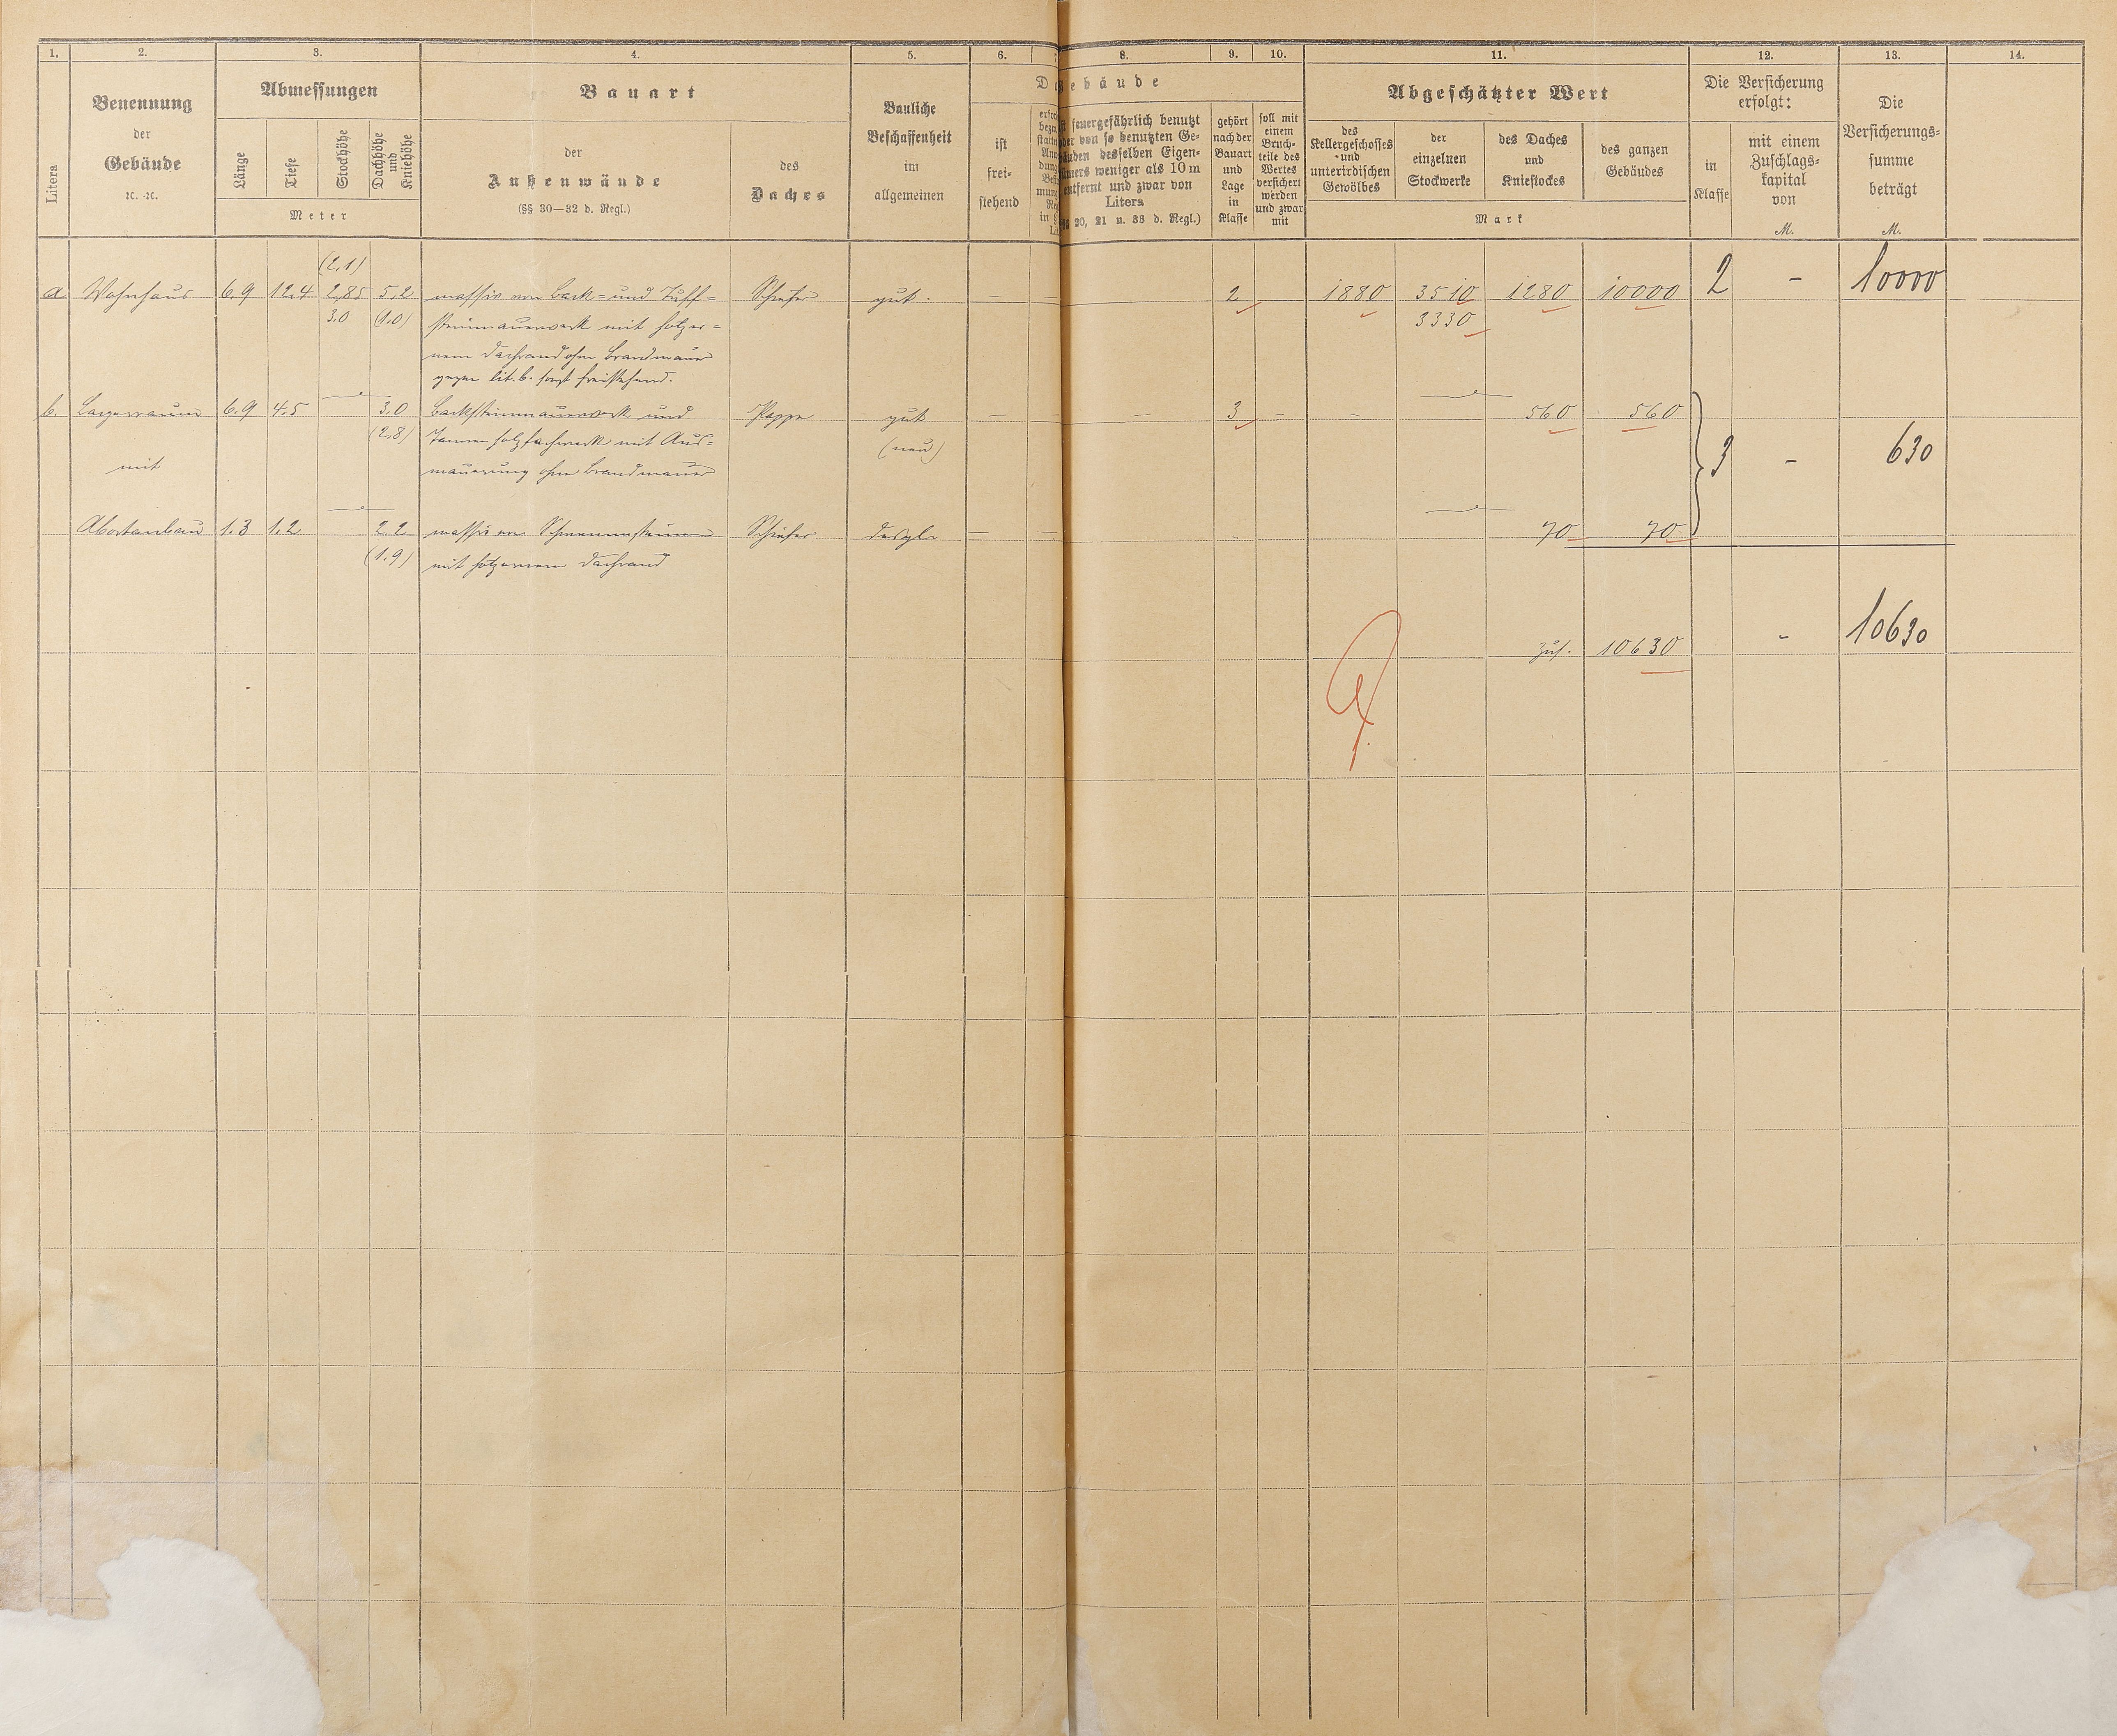 1. 2. 3. 4. 5. 6. 8. 9. 10. 11. 12. 13. 14.
Litera
Benennung
der
Gebäude
ꝛc. ꝛc.
Abmessungen
Länge
Tiefe
Stockhöhe
Dachhöhe
und
Kniehöhe
Meter
Bauart
der
Außenwände
(§§ 30—32 d. Regl.)
des
Daches
Bauliche
Beschaffenheit
im
allgemeinen
ebäude
ist
frei-
stehend
feuergefährlich benutzt
oder von so benutzten Ge-
bäuden desselben Eigen-
tümers weniger als 10 m
entfernt und zwar von
Litera
20, 21 u. 33 d. Regl.)
gehört
nach der
Bauart
und
Lage
in
Klasse
soll mit
einem
Bruch-
teile des
Wertes
versichert
werden
und zwar
mit
Abgeschätzter Wert
des
Kellergeschosses
und
unterirdischen
Gewölbes
der
einzelnen
Stockwerke
des Daches
und
Kniestockes
des ganzen
Gebäudes
Mark
Die Versicherung
erfolgt:
in
Klasse
mit einem
Zuschlags-
kapital
von
M.
Die
Versicherungs-
summe
beträgt
M.
(2,1)
a Wohnhaus 6.9 12,4 2,85 5,2 massiv von Back- und Tuff- Schiefer gut. — 2 1880 3510 1280 10000 2 – 10000
3.0 (1.0) steinmauerwerk mit hölzer- 3330
nem Dachrand ohne Brandmauer
gegen lit. b. sonst freistehend.
b. Lagerraum 6.9 4,5 3,0 Backsteinmauerwerk und Pappe gut — — — 3 – – 560 560
(2,8) Tannenholzfachwerk mit Aus- (neu)
mit mauerung ohne Brandmauer 3 – 630
Abortanbau 1.3 1.2 2.2 massiv von Schwemmsteinen Schiefer desgl. — 70 70
(1.9) mit hölzernem Dachrand
zus. 10630 - 10630